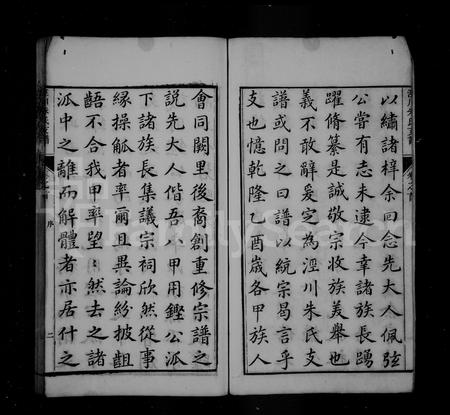 涇川朱氏支譜 卷之首
以繡諸梓余回念先大人佩弦
公嘗有志未逮今幸諸族長踴
躍脩纂是誠敬宗收族美舉也
義不敢辭爰定為涇川朱氏支
譜或問之曰譜以統宗曷言乎
支也憶乾隆乙酉歲各甲族人
會同闕里後裔創重修宗譜之
說先大人偕吾八甲用鏗公派
下諸族長集議宗祠欣然從事
緣操觚者率爾且異論紛披齟
齬不合我甲率望〻然去之諸
派中之離而解體者亦居什之
序 二
FamilySearch